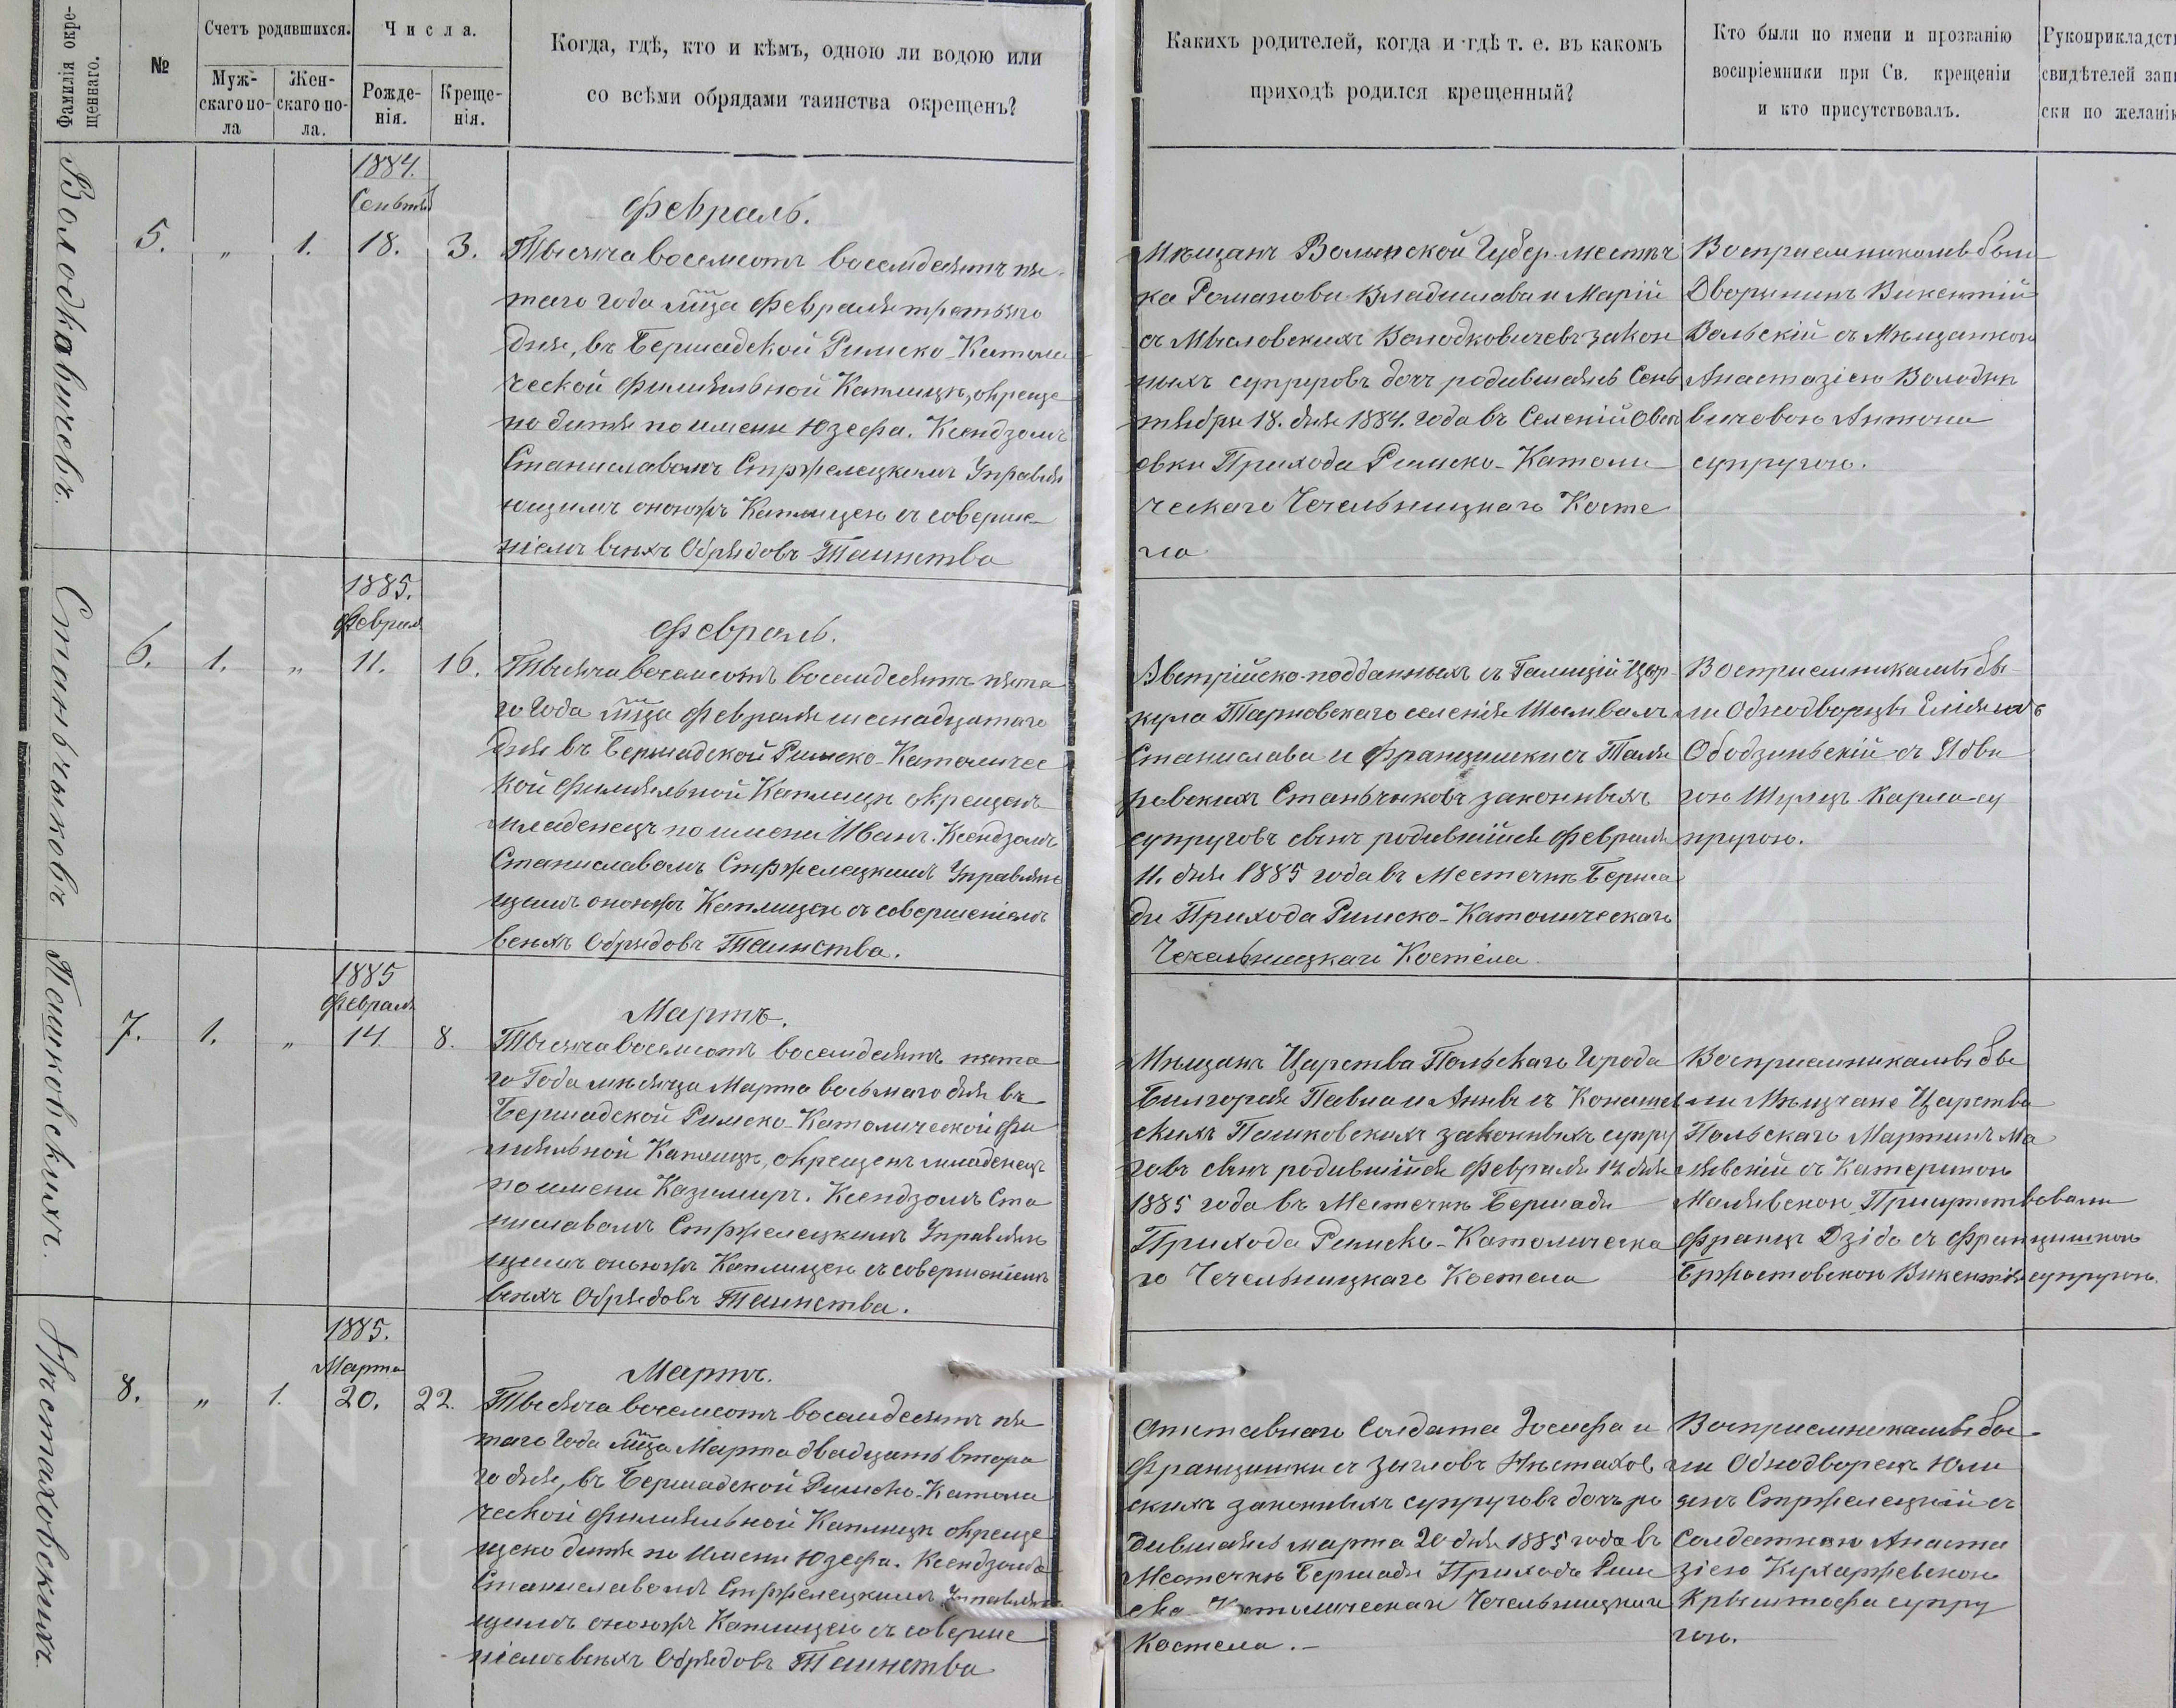 Фамилія окре-
щеннаго.
№
Счетъ родившихся.
Муж-
скаго по-
ла
Жен-
скаго по-
ла.
Числа.
Рожде-
нія.
Креще-
нія.
Когда, гдѣ, кто и кѣмъ, одною ли водою или
со всѣми обрядами таинства окрещенъ?
Какихъ родителей, когда и гдѣ т. е. въ какомъ
приходѣ родился крещенный?
Кто были по имени и прозванію
воспріемники при Св. крещеніи
и кто присутствовалъ.
Рукоприкладст
свидѣтелей зап
ски по желанію
Володкавичевъ.
5. " 1.
1884.
18. 3.
Февраль.
Тысяча восемсотъ восемдесятъ пя-
таго года мца Февраля третьяго
дня, въ Бершадской Римско-Католи
ческой Филіяльной Каплицѣ, окреще
но дитя по имени Юзефа. Ксендзомъ
Станиславомъ Стржелецкимъ Управля
ющимъ оноюжъ Каплицею съ соверше-
ніемъ всѣхъ Обрядовъ Таинства
Мѣщанъ Волынской Губер. Местеч
ка Романова Владислава и Маріи
съ Мысловскихъ Володковичевъ закон
ныхъ супруговъ дочь родившаясь Сень
тября 18. дня 1884. года въ Селеній
евки Прихода Римско-Католи
ческаго Чечельницкаго Косте
ла
Восприемникамы были
Дворянинъ Викентій
Вольскій съ Мѣщанкою
Анастазіею Володко
вичевою Антона
супругою.
Станьчыковъ
6. 1. "
1885.
Февраля
11. 16.
Февраль.
Тысяча восемсотъ восемдесятъ пята
го Года мца Февраля шеснадцатаго
дня въ Бершадской Римско-Католичес
кой Филіяльной Каплицѣ окрещенъ
младенецъ по имени Иванъ. Ксендзомъ
Станиславомъ Стржелецкимъ Управляю
щимъ оноюжъ Каплицею съ совершеніемъ
всѣхъ Обрядовъ Таинства.
Австрійско-подданныхъ съ Галиціи Цыр-
кула Тарновскаго селенія
Станислава и Францишки съ
ровскихъ Станьчиковъ законныхъ
супруговъ сынъ родившійся Февраля
11. дня 1885 года въ Местечкѣ Берша
ди Прихода Римско-Католическаго
Чечельницкаго Костела.
Восприемникамы бы-
ли Однодворцы
Ободзинскій съ Ядви
гою Шулецъ Карла су
пругою.
Пашковскихъ.
7. 1. "
1885
Февраля
14. 8.
Мартъ.
Тысяча восемсотъ восемдесятъ пята
го Года мѣсяца Марта восьмаго дня въ
Бершадской Римско-Католической Фи
ліяльной Каплицѣ, окрещенъ младенецъ
по имени Казимиръ. Ксендзомъ Ста
ниславомъ Стржелецкимъ Управляю
щимъ оноюжъ Каплицею съ совершеніемъ
всѣхъ Обрядовъ Таинства.
Мѣщанъ Царства Польскаго Города
Билгорая Павла и Анны съ
скихъ Пашковскихъ законныхъ супру
говъ сынъ родившійся Февраля 14 дня
1885 года въ Местечкѣ Бершади
Прихода Римско-Католическа
го Чечельницкаго Костела
Восприемникамы бы
ли Мѣщане Царства
Польскаго Мартинъ Ма
лявскій съ Катериною
Малявскою Присутствовали
Францъ Дзідо съ Францишкою
Бржостовскою Викентія супругою.
Нѣстаховскихъ.
8. " 1.
1885.
Марта
20. 22.
Мартъ.
Тысяча восемсотъ восемдесятъ пя
таго Года мца Марта двадцать втора
го дня, въ Бершадской Римско-Католи
ческой Филіяльной Каплицѣ окреще
щено дитя по Имени Юзефа. Ксендзомъ
Станиславомъ Стржелецкимъ Управляю
щимъ оноюжъ Каплицею съ соверше
ніемъ всѣхъ Обрядовъ Таинства
Отставнаго Солдата Іосифа и
Францишки съ Нѣстахов
скихъ законныхъ супруговъ дочь ро
дившаясь марта 20 дня 1885 года въ
Местечкѣ Бершади Прихода Рим
ско-Католическаго Чечельницкаго
Костела.-
Восприемникамы бы-
ли Однодворецъ Юли
янъ Стржелецкій съ
Солдаткою Анаста
зіею Кухаржевскою
Крыштофа супру
гою.